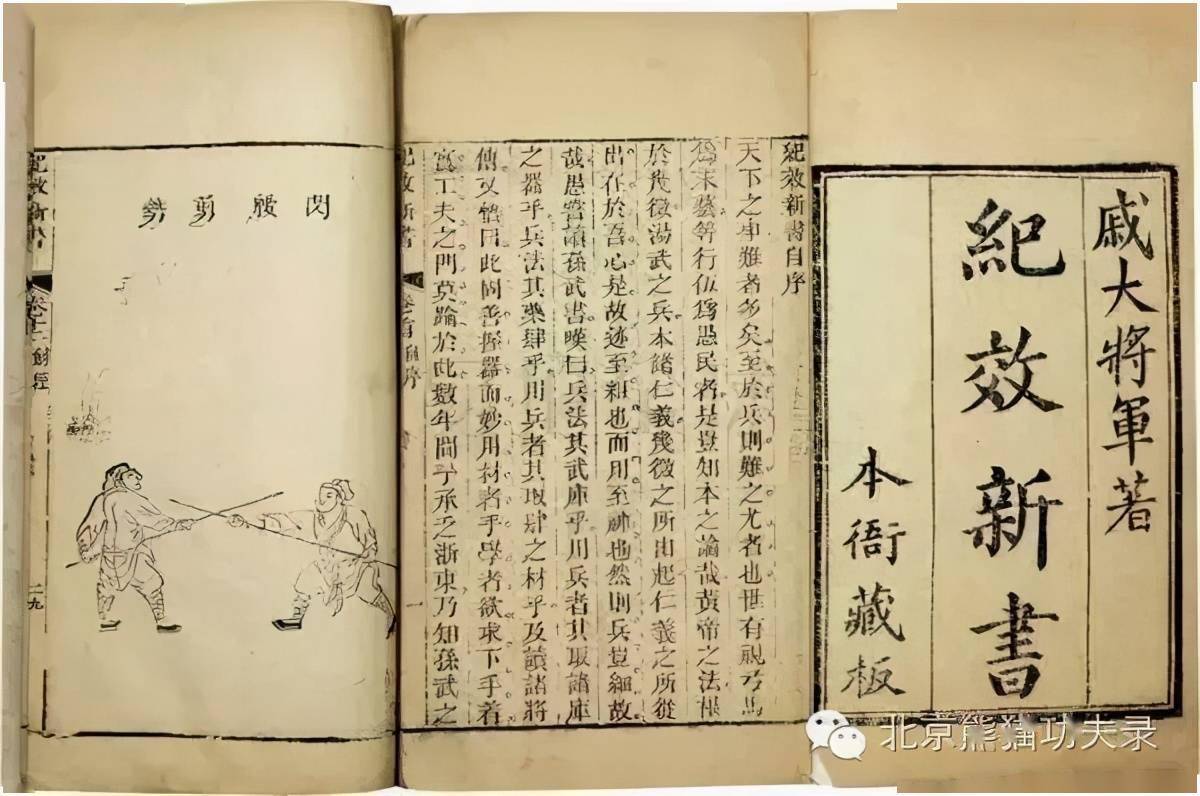 戚大將軍著
紀效新書
本衙藏板
紀效新書自序
天下之事難者多矣至於兵則難之尤者也世有視馬
爲末藝等行伍爲愚民者是豈知本之論哉黃帝之法根
於幾微湯武之兵本諸仁義幾微之所由起仁義之所從
出在於吾心是故迹至粗也而用至神也然則兵豈細故
哉愚嘗讀孫武書嘆曰兵法其武庫乎用兵者其取諸庫
之器乎兵法其藥肆乎用兵者其取肆之材乎及讀諸將
傳又悟曰此固善握器而妙用材者乎學者欲求下手着
實工夫之門莫踰於此數年間予承乏浙東乃知孫武之
紀效新書 卷首 自序 一
閃腰剪勢
紀效新書 卷十二 劍經 二九
北京熊猫功夫录